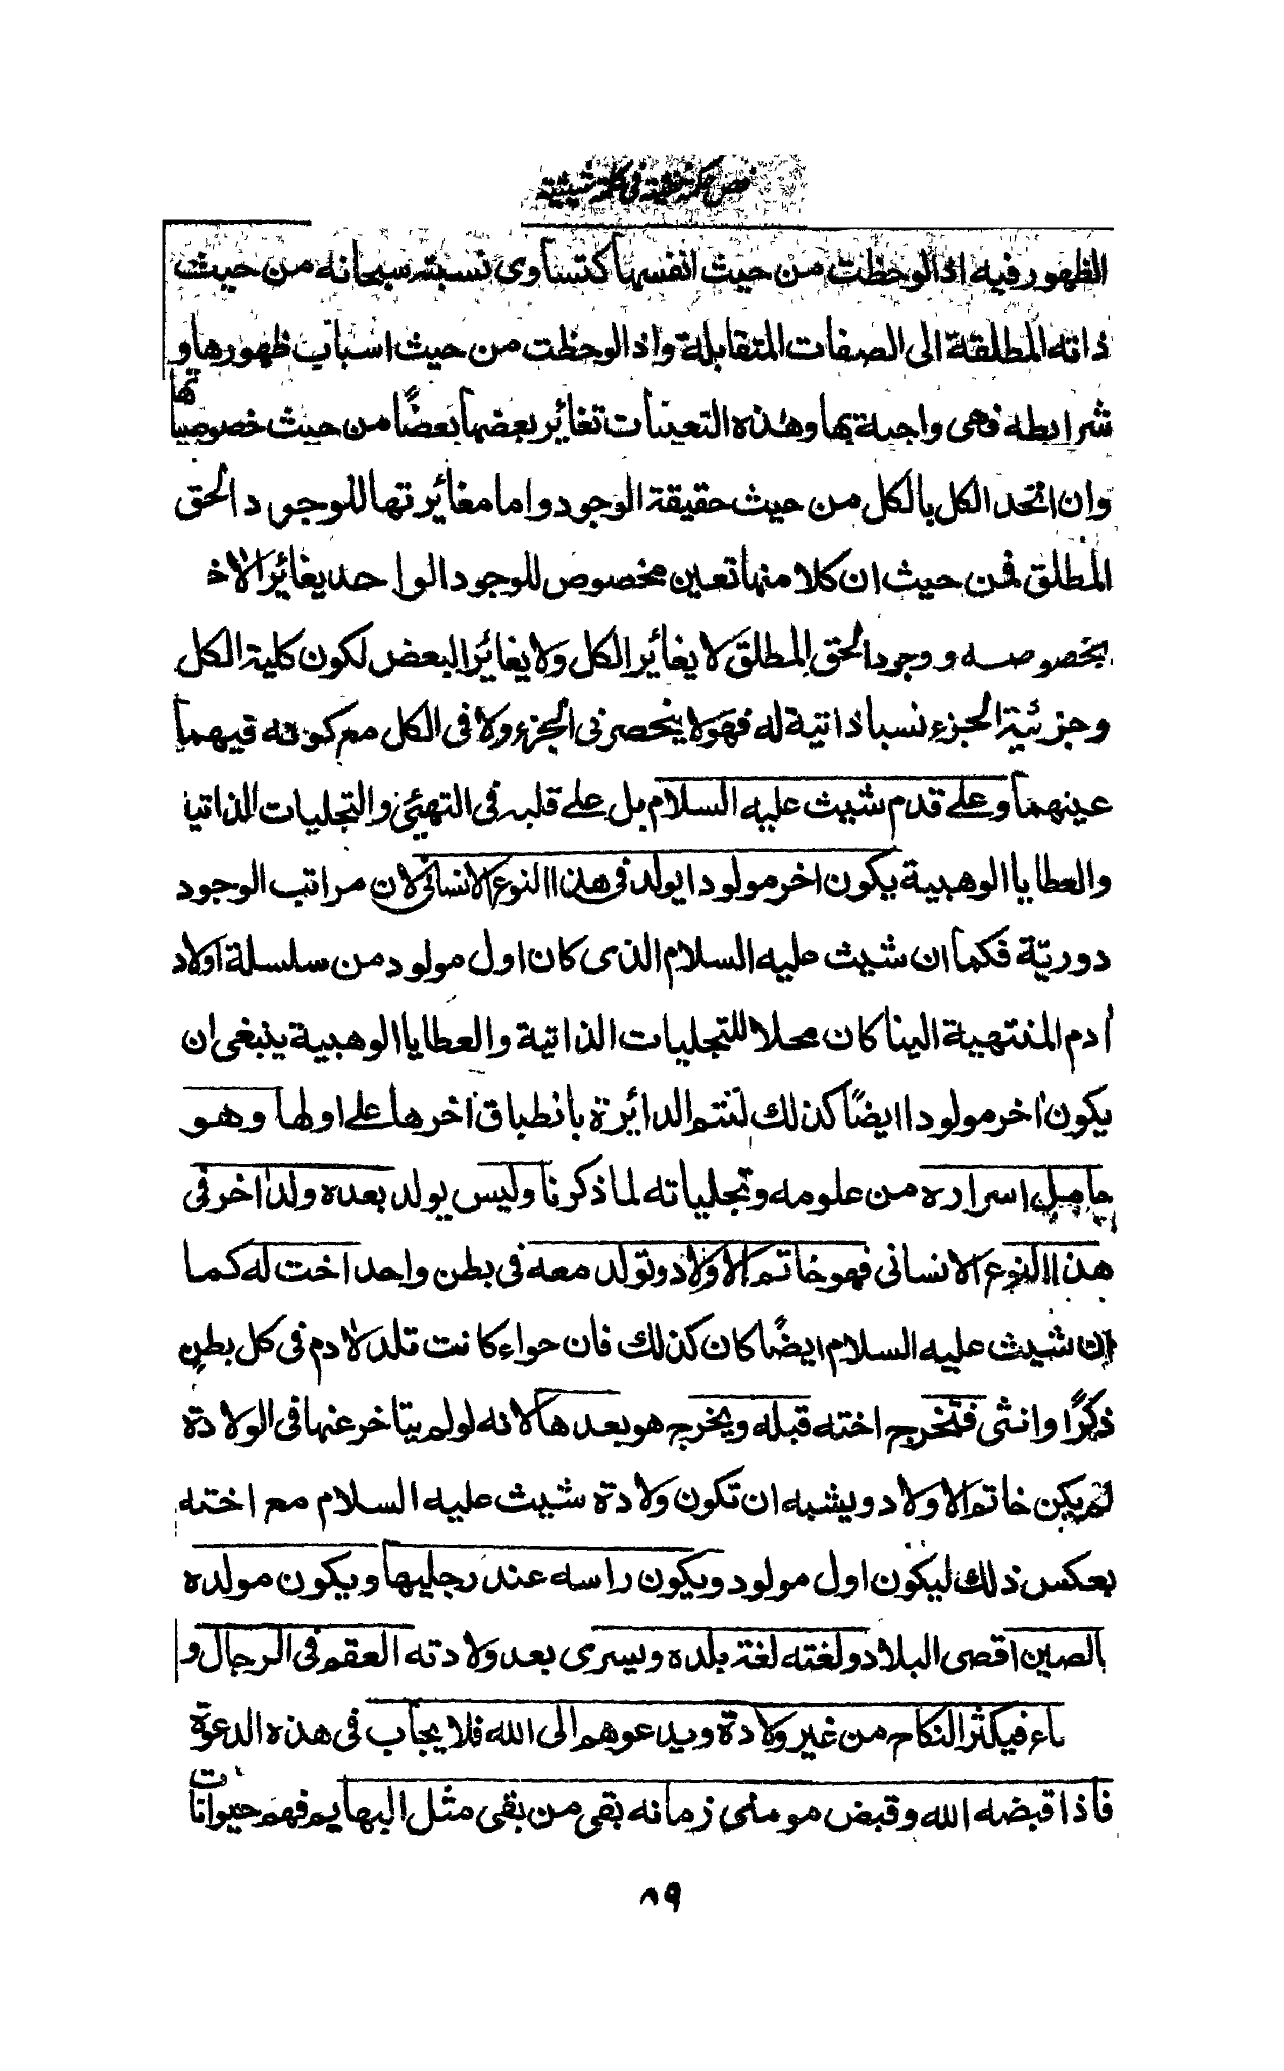 فص حكمة نفثية فى كلمة شيثية
الظهور فيه اذا لوحظت من حيث انفسها كتساوى نسبته سبحانه من حيث
ذاته المطلقة الى الصفات المتقابلة واذا لوحظت من حيث اسباب ظهورها و
شرابطه فهى واجبة بها وهذه التعينات تغائر بعضها بعضًا من حيث خصوصياتها
وان اتحد الكل بالكل من حيث حقيقة الوجود واما مغائرتها للوجود الحق
المطلق فمن حيث ان كلا منها تعين مخصوص للوجود الواحد يغائر الاخ
بخصوصه ووجود الحق المطلق لا يغائر الكل ولا يغائر البعض لكون كلية الكل
وجزئية الجزء نسبا ذاتية له فهو لا ينحصر فى الجزء ولا فى الكل مع كونه فيهما
عينهما وعلى قدم شيث عليه السلام بل على قلبه فى التهيئ والتجليات الذاتية
والعطايا الوهبية يكون اخر مولود يولد فى هذا النوع الانسانى لان مراتب الوجود
دوريّة فكما ان شيث عليه السلام الذى كان اول مولود من سلسلة اولاد
أدم المنتهية الينا كان محلا للتجليات الذاتية والعطايا الوهبية ينبغى ان
يكون اخر مولود ايضًا كذلك لتتم الدائرة بانطباق اخرها على اولها وهو
حامل اسراره من علومه وتجلياته لما ذكرنا وليس يولد بعده ولد اخر فى
هذا النوع الانسانى فهو خاتم الاولاد وتولد معه فى بطن واحد اخت له كما
ان شيث عليه السلام ايضًا كان كذلك فان حواء كانت تلد لادم فى كل بطن
ذكرًا وانثى فتخرج اخته قبله ويخرج هو بعدها لانه لو لم يتاخر عنها فى الولادة
لم يكن خاتم الاولاد ويشبه ان تكون ولادة شيث عليه السلام مع اخته
بعكس ذلك ليكون اول مولود ويكون راسه عند رجليها ويكون مولده
بالصين اقصى البلاد ولغته لغة بلده ويسرى بعد ولادته العقم فى الرجال و
ناء فيكثر النكاح من غير ولادة ويدعوهم الى الله فلا يجاب فى هذه الدعوة
فاذا قبضه الله وقبض مومنى زمانه بقى من بقى مثل البهايم فهم حيوانات
٨٩